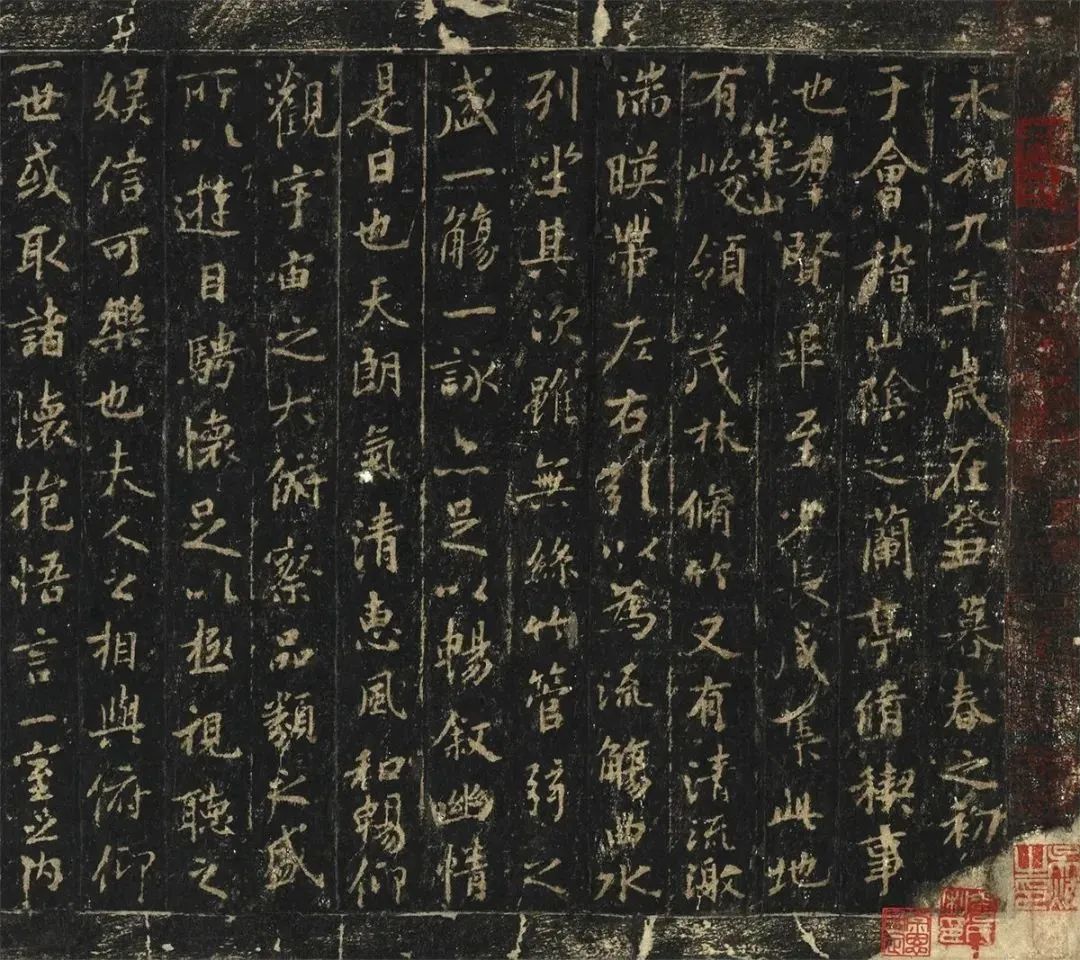 永和九年歲在癸丑暮春之初
于會稽山陰之蘭亭脩稧事
也羣賢畢至少長咸集此地
有崇山峻領茂林脩竹又有清流激
湍暎帶左右引以為流觴曲水
列坐其次雖無絲竹管弦之
盛一觴一詠亦足以暢敘幽情
是日也天朗氣清惠風和暢仰
觀宇宙之大俯察品類之盛
所以遊目騁懷足以極視聽之
娛信可樂也夫人之相與俯仰
一世或取諸懷抱悟言一室之內